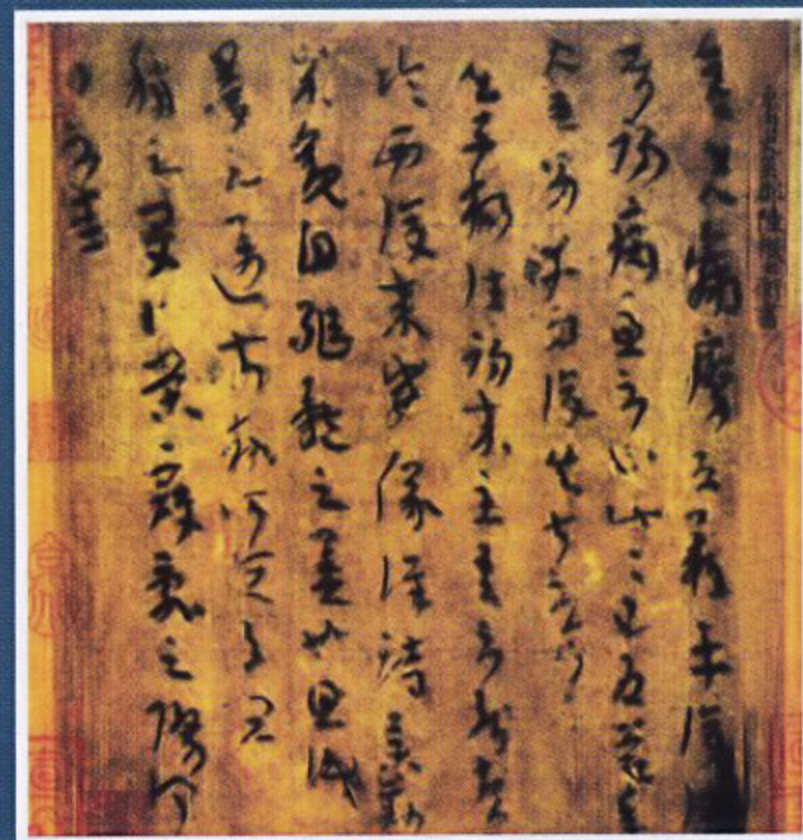 彥先羸瘵恐難平復
往屬初病慮不止此此已為慶承
使唯男幸為復失前憂耳
吳子楊往初來主吾不能盡
臨西復來威儀詳跱舉動
成觀自軀體之美也思識
量之邁前勢所恒有宜
稱之夏伯榮寇亂之際聞
問不悉